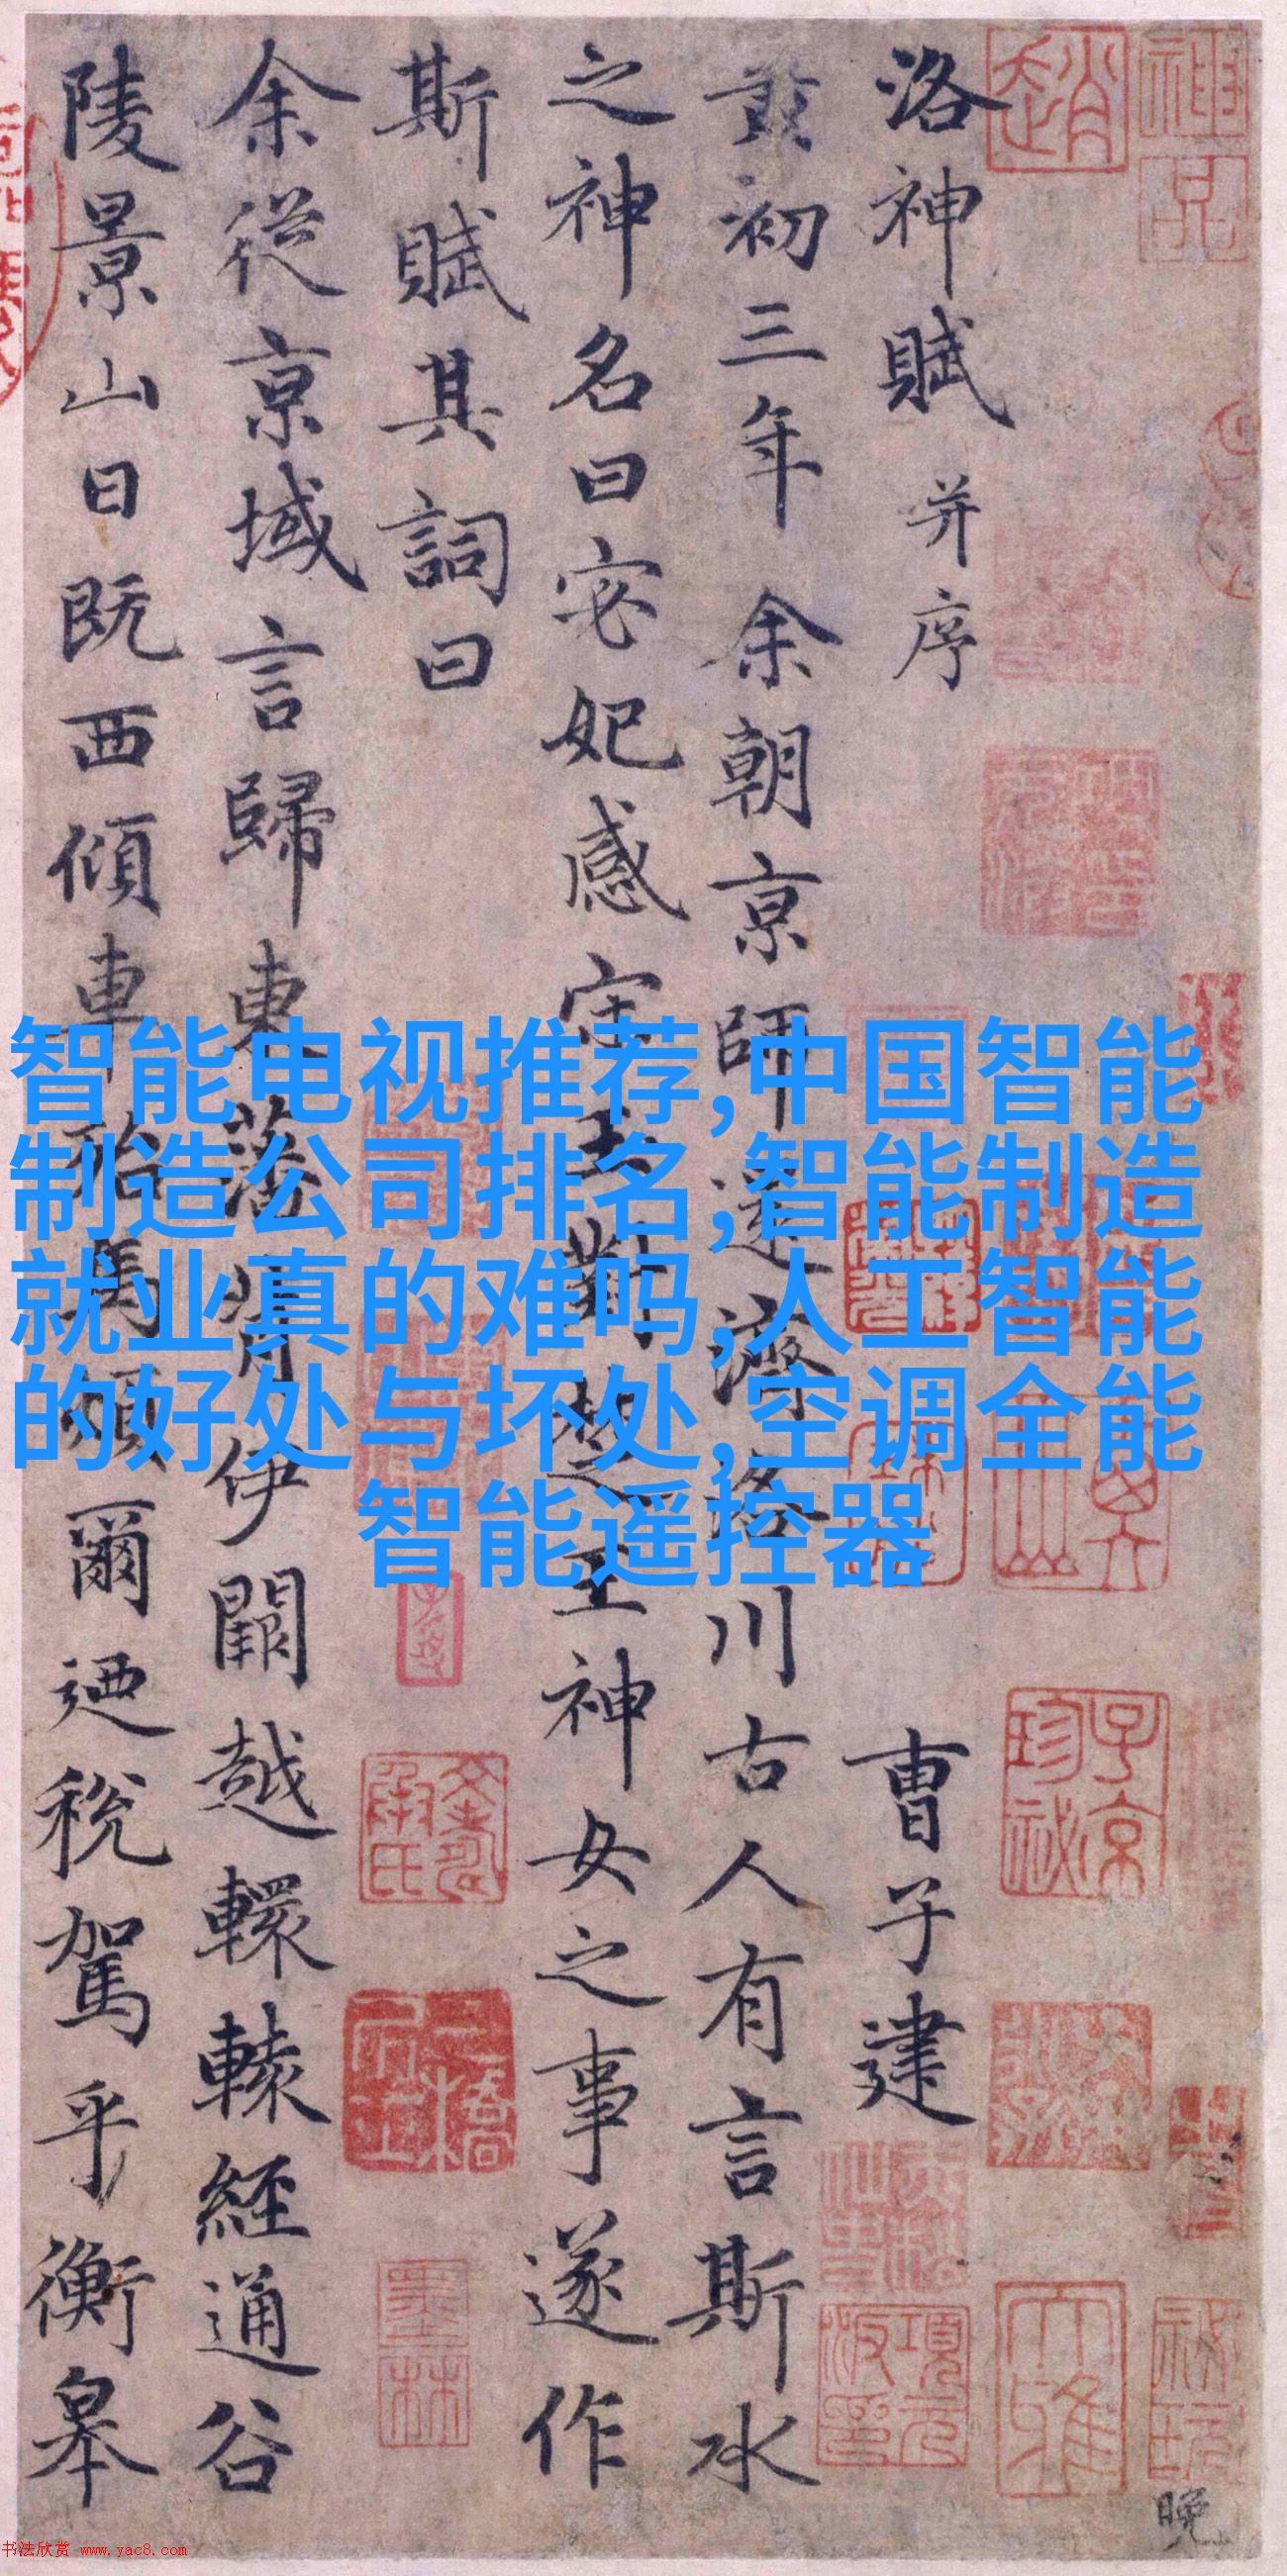 洛神賦 并序 曹子建
黄初三年余朝京師還濟洛川古人有言斯水
之神名曰宓妃感宋玉對楚王神女之事遂作
斯賦其詞曰
余從京域言歸東藩背伊闕越轘轅經通谷
陵景山日既西傾車殆馬煩爾迺稅駕乎衡皋
智能电视推荐,中国智能
制造公司排名,智能制造
就业真的难吗,人工智能
的好处与坏处,空调全能
智能遥控器
趙
子京珍祕
項元汴印
墨林
晚
书法欣赏 www.yac8.com